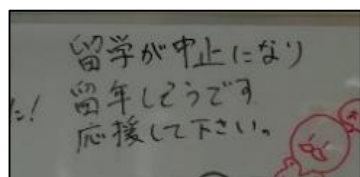 留学が中止になり
留年しそうです
応援して下さい。
た!